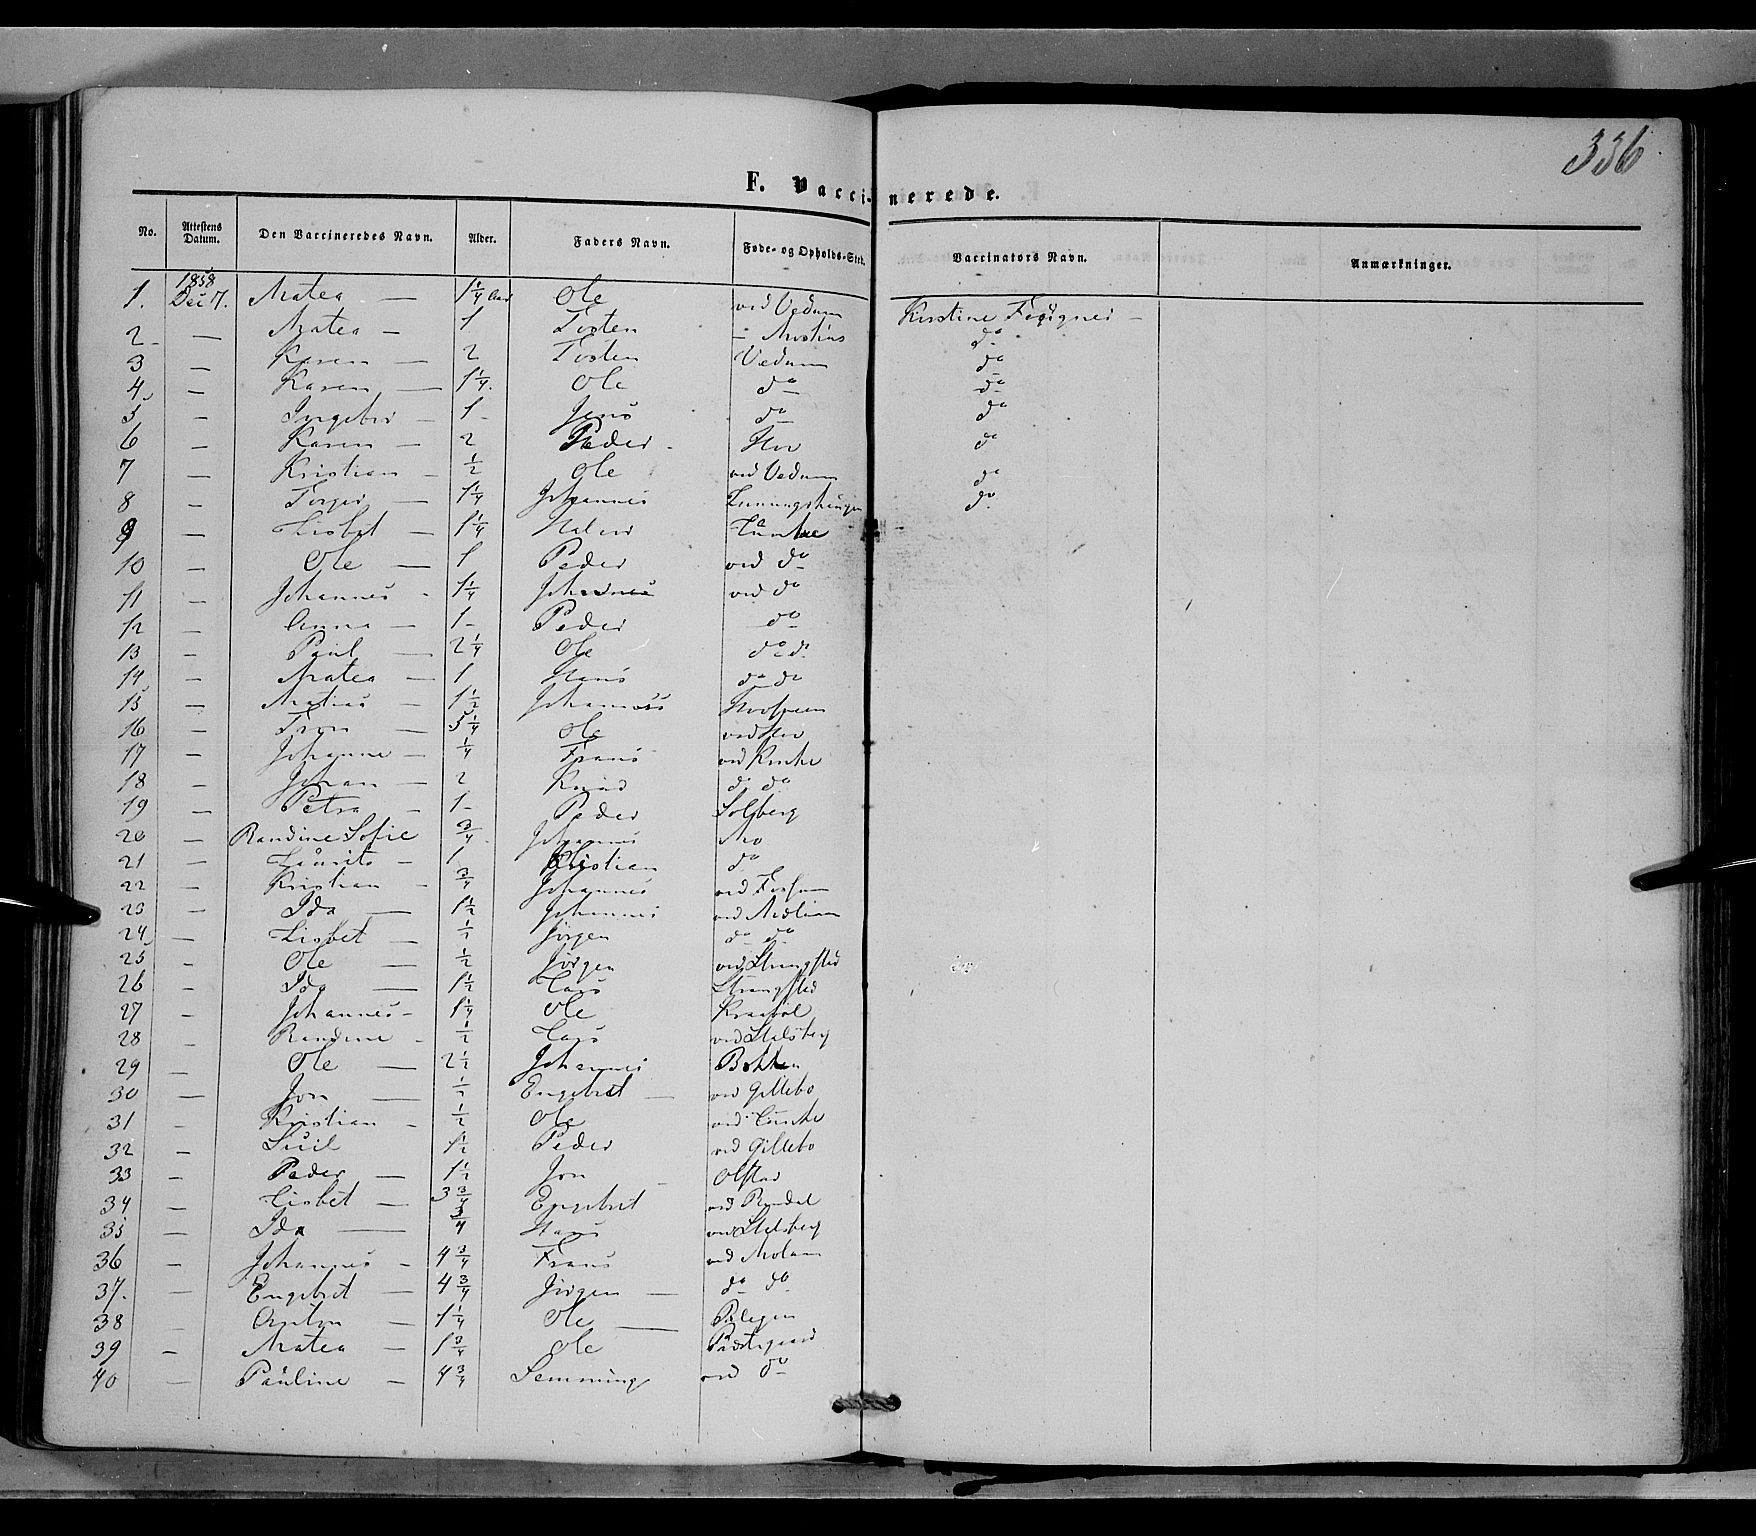 336
F. Vaccinerede.
No. Attestens Datum. Den Vaccineredes Navn. Alder. Faders Navn. Føde- og Opholds-Sted. Vaccinators Navn. Anmærkninger.
1858
1. Dec 17. Matea — 1 1/4 Aar Ole ved Vedum Kirstine
2 — Matea — 1 Tosten do
3 — Karen — 2 Tosten Vedum do
4 — Karen — 1 1/4. Ole do do
5 — Ingebor — 1 - Jens do do
6 — Karen — 2 Peder - Hov do
7 — Kristian - 1/2 Ole ved Vedum do
8 — Torger — 1 1/4 Johannes do
9 — Lisbet — 1 1/4 Halvor
10 — Ole — 1 Peder ved do
11 — Johannes - 1 1/4 Johannes ved do
12 — Anna — 1 - Peder do
13 — Paul — 2 1/4 Ole do do
14 — Matea — 1 Hans do do
15 — Matias — 1 1/2 Johannes
16 — Tron — 5 1/4 Ole ved Hov
17 — Johanne — 1/4 Frans ved
18 — Johan — 2 Knud do do
19 — Petra — 1 - Peder Solberg
20 — Randine Sofie 3/4 Johannes Mo
21 — Laurits — 1 Kristian do
22 — Kristian - 3/4 Johannes ved Fossum
23 — Ida — 1 1/2 Johannes ved
24 — Lisbet — 1/2 Jörgen do do
25 — Ole — 1/2 Jörgen ved Strangsted
26 — Ida — 1 1/2 Lars Strangsted
27 — Johannes - 1 1/4 Ole
28 — Randine - 1/2 Lars ved Stalsberg
29 — Ole — 2 1/2 Johannes Bakken
30 — Jon — 1/2 Engebret — ved Gillebo
31 — Kristian - 1/2 Ole ved
32 — Siül 1 1/2 Peder ved Gillebo
33 — Peder — 1 1/2 Jon Olstad
34 — Lisbet — 3 3/4 Engebret ved Ryndal
35 — Ida — 3/4 Hans ved Stalsberg
36 — Johannes - 4 3/4 Frans ved
37. — Engebret — 4 3/4 Jörgen — do do
38 — Anton — 1 1/4 Ole —
39 — Matea — 1 3/4 Ole
40 — Pauline — 4 3/4 Lemming ved do